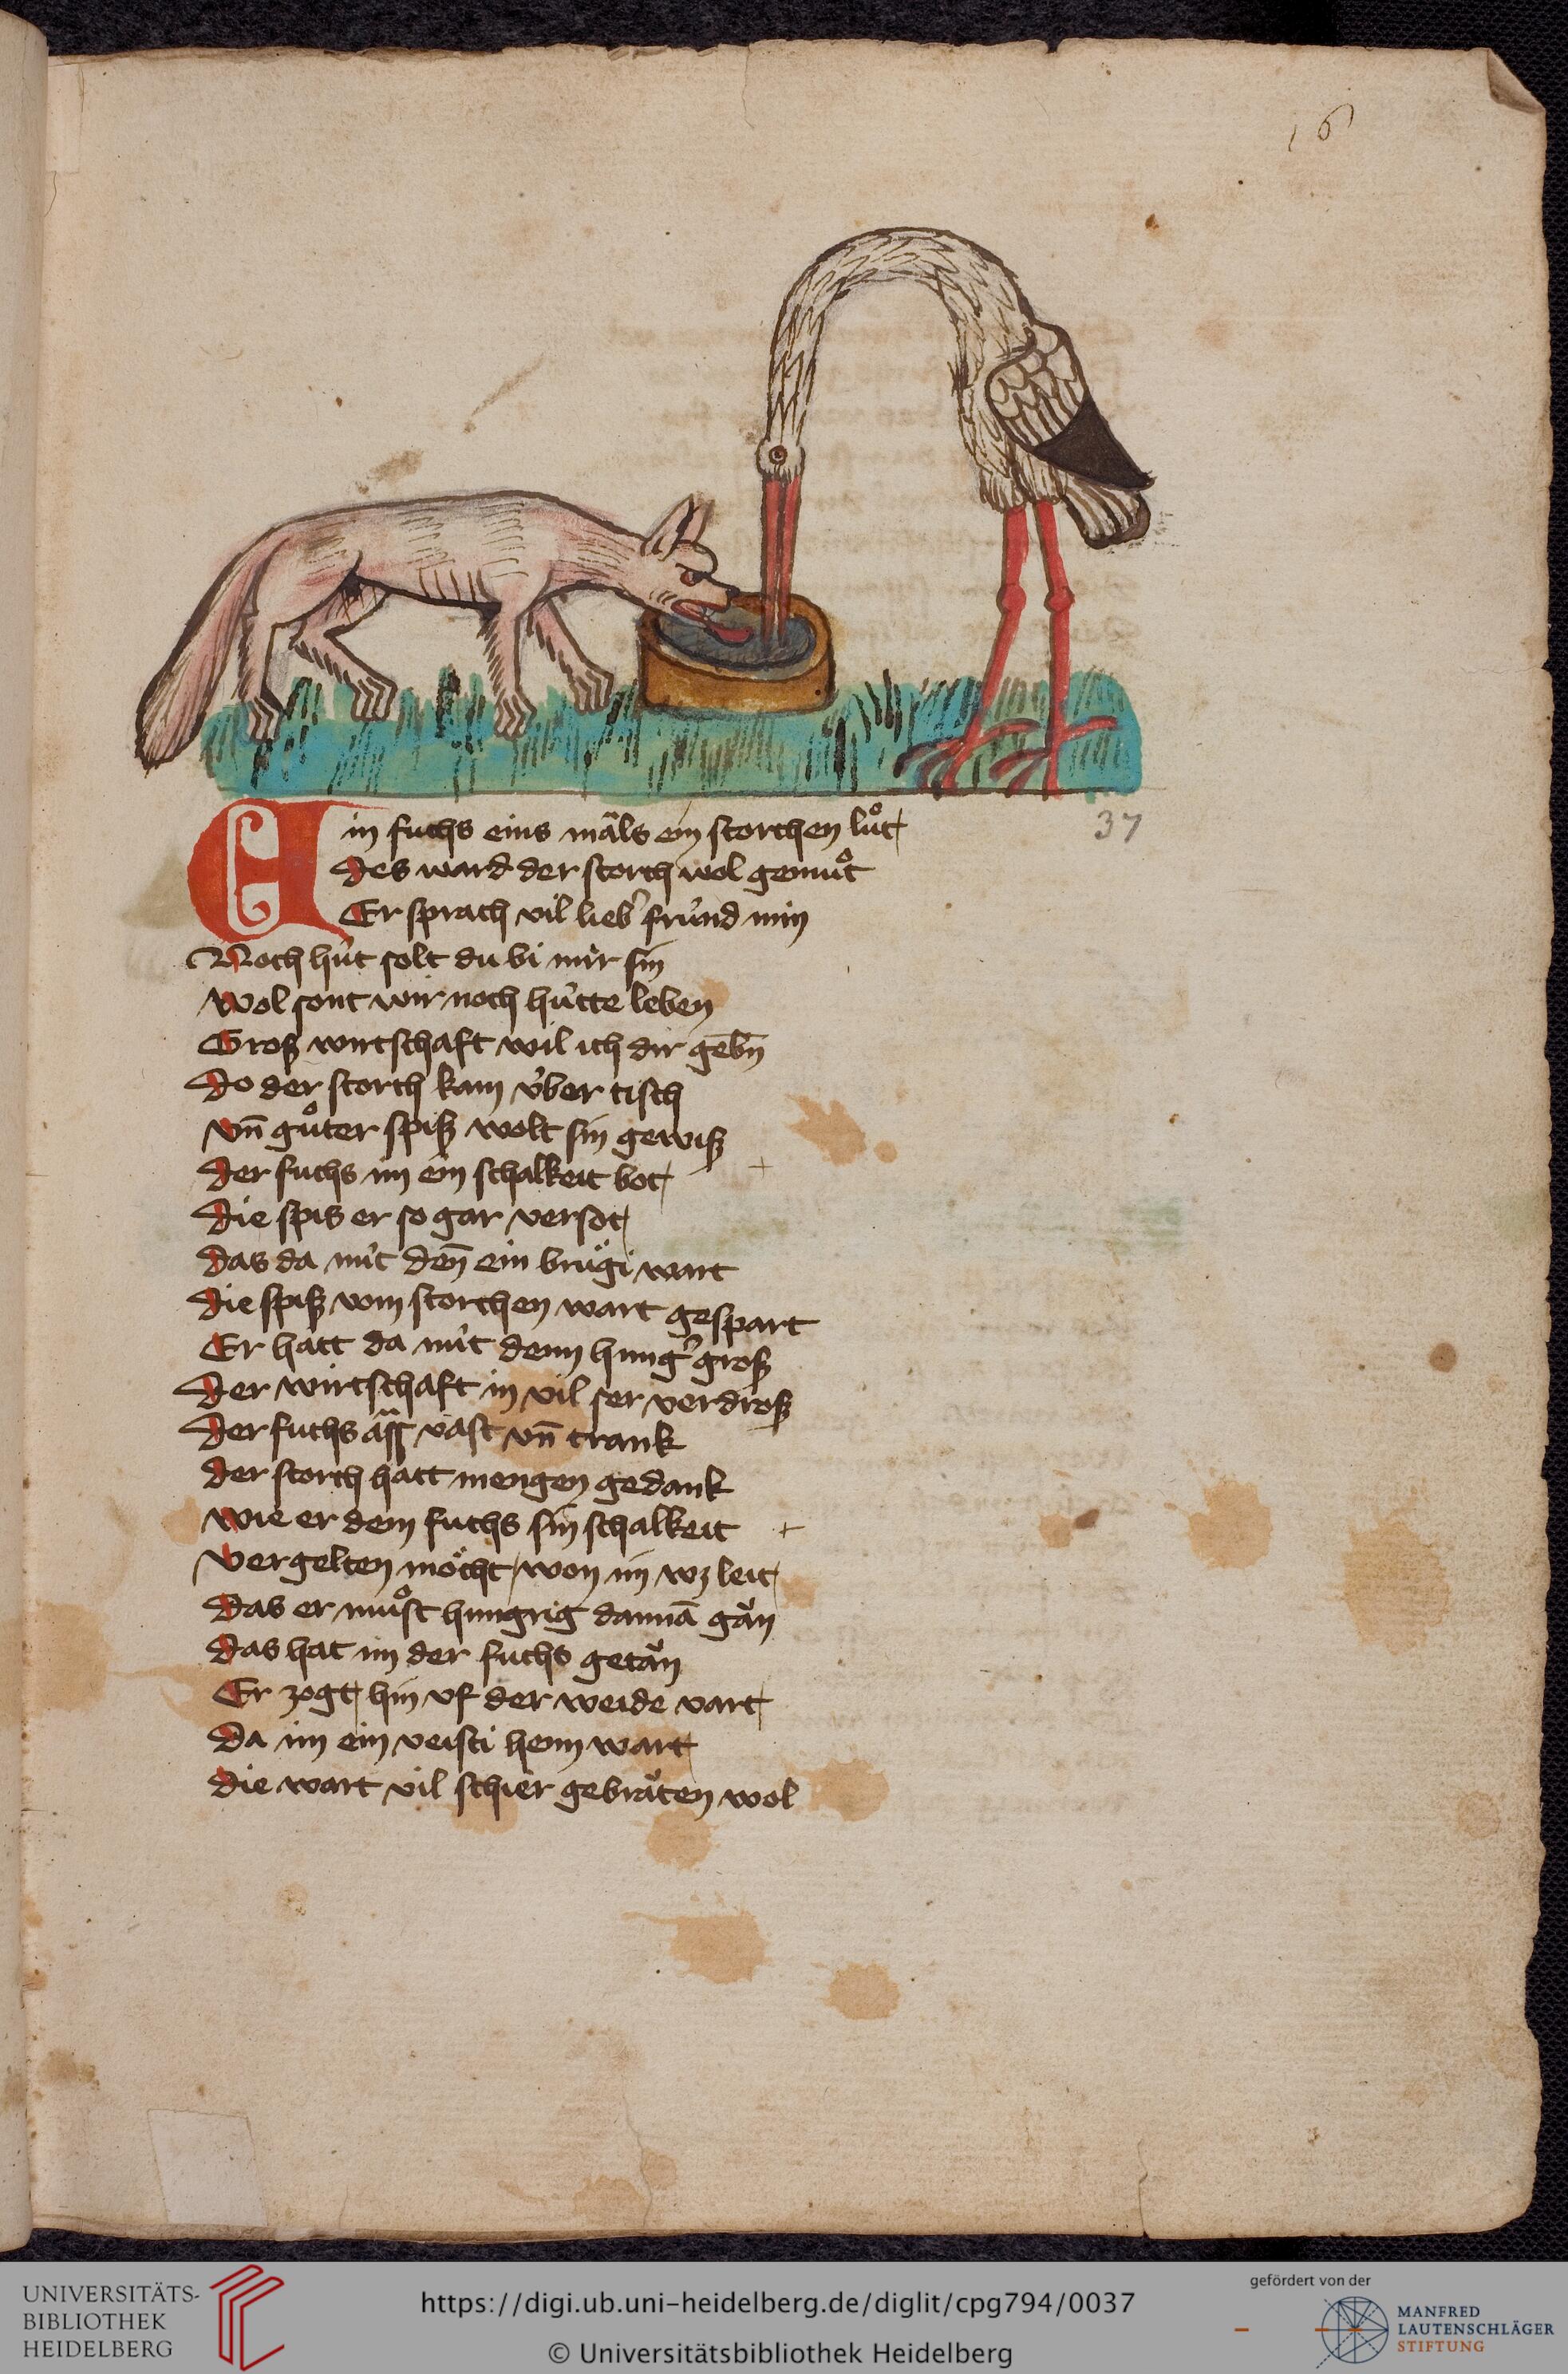 16
Ein fuchs eins mäls ein storchen luͦt
37
des ward der storch wol gemuͦt
Er sprach vil lieber fründ min
Noch hüt solt du bi mir sin
Wol sont wir noch hütte leben
Groß wirtschaft wil ich dir gebn̄
do der storch kam v̈ber tisch
vn̄ guͦter spiß wolt sin gewiß
der fuchs im ein schalkeit bot
die spis er so gar versot
das da nüt den̄ ein brügi wart
die spiß vom storchen wart gespart
Er hatt da nüt denn hung' groß
der wirtschaft in vil ser verdroß
der fuchs äſſ vast vn̄ trank
der storch hatt mengen gedank
wie er dem fuchs sin schalkeit
vergelten möcht won im wz leit
das er muͦst hungrig dannā gän
das hat im der fuchs getän
Er zogt hin vf der weide vart
da im ein veisti henn wart
die wart vil schier gebräten wol
UNIVERSITÄTS-
BIBLIOTHEK
HEIDELBERG
https://digi.ub.uni-heidelberg.de/diglit/cpg794/0037
© Universitätsbibliothek Heidelberg
gefördert von der
MANFRED
LAUTENSCHLÄGER
STIFTUNG